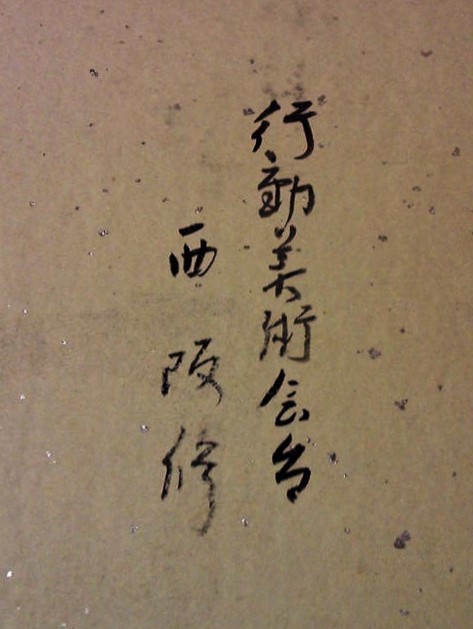 行動美術会員
西阪修